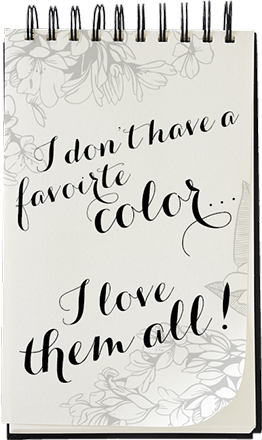 I don't have a
favoirte
color...
I love
them all!